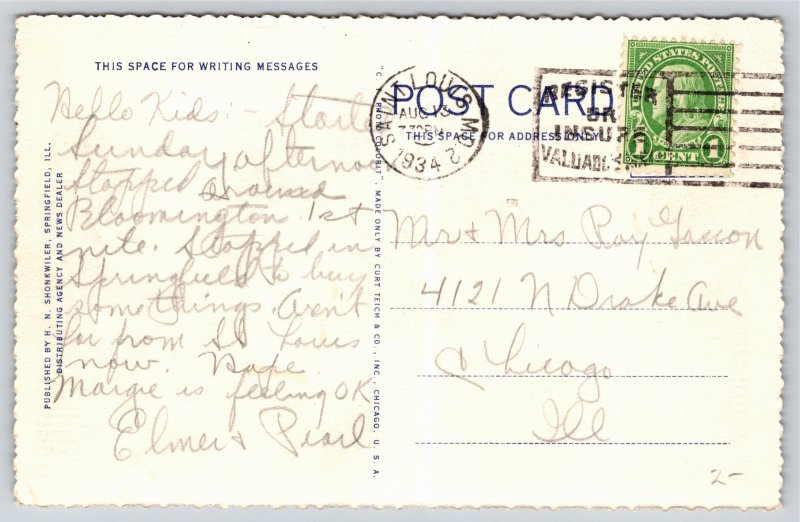 THIS SPACE FOR WRITING MESSAGES
Hello Kids:- Started
Sunday afternoon
stopped around
Bloomington 1st
nite. Stopped in
Springfield to buy
some things. Aren't
far from St Louis
now. Hope
Margie is feeling OK
Elmer & Pearl
PUBLISHED BY H. N. SHONKWILER, SPRINGFIELD, ILL.
DISTRIBUTING AGENCY AND NEWS DEALER
MADE ONLY BY CURT TEICH & CO., INC., CHICAGO, U. S. A.
POST CARD
THIS SPACE FOR ADDRESS ONLY
SAINT LOUIS, MO.
AUG 13
1934
REGISTER
OR
INSURE
VALUABLE
UNITED STATES POSTAGE
1 CENT 1
Mr & Mrs Ray
4121 N Drake Ave
Chicago
Ill
2-